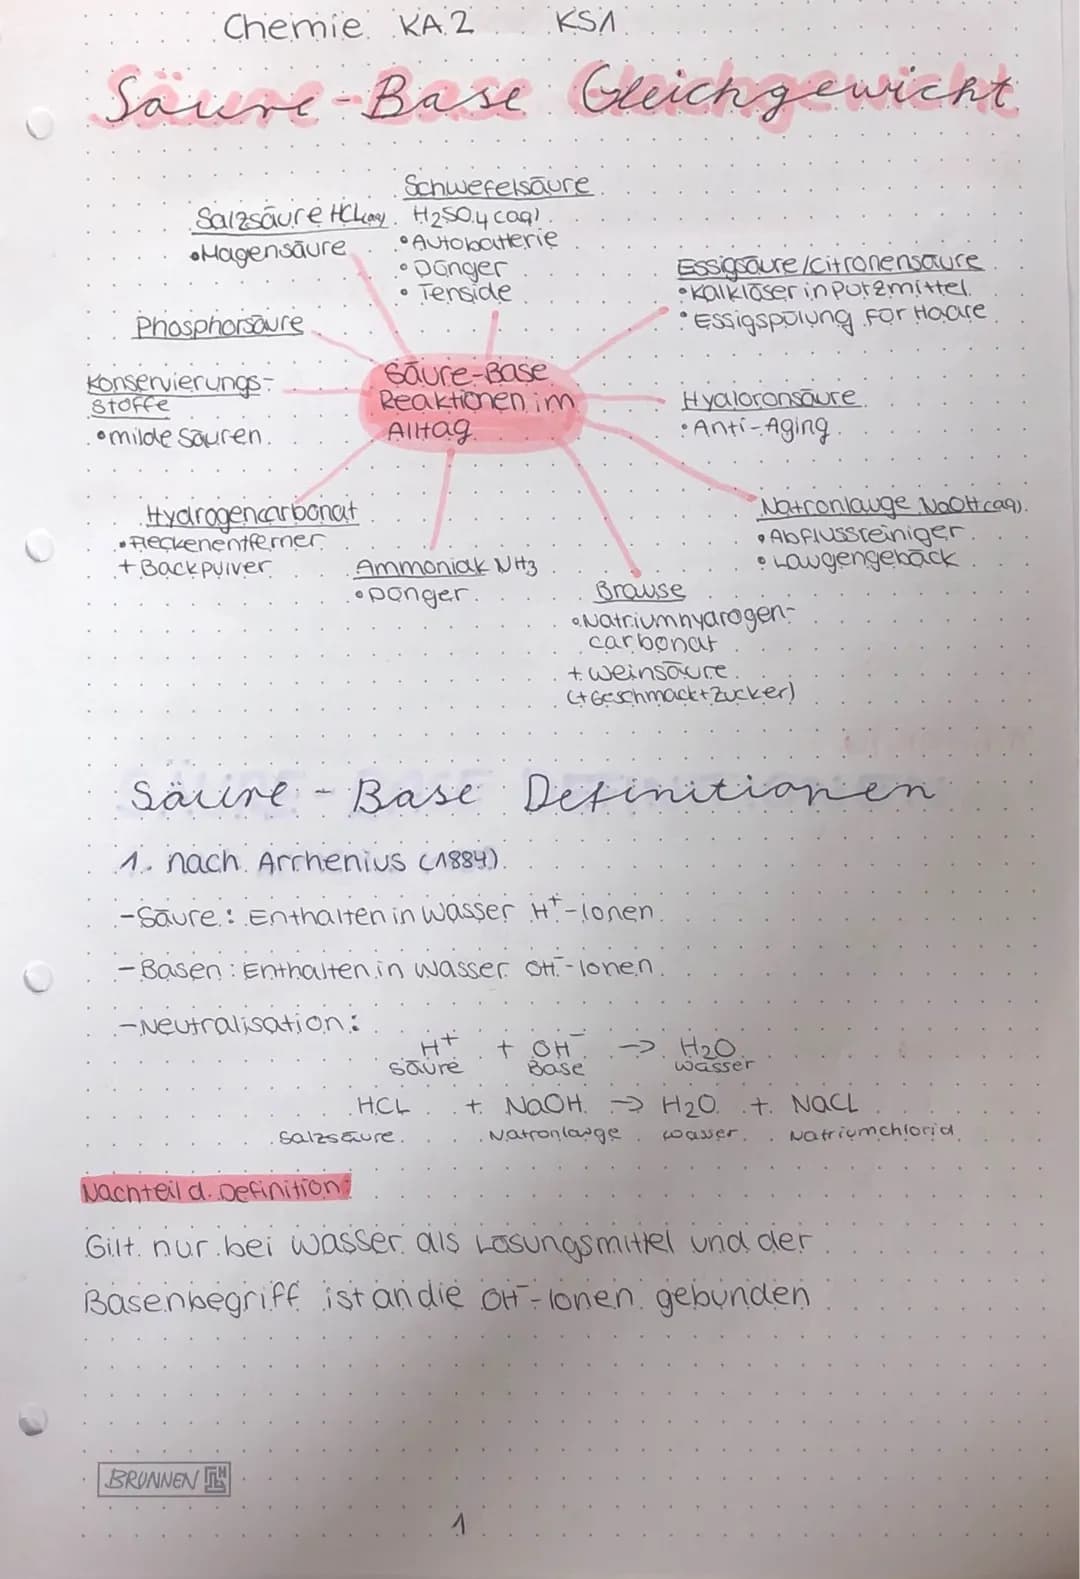 Chemie KA 2 KS1
Säure-Base Gleichgewicht
Schwefelsäure
H2SO4 (aq)
• Autobatterie
• Dünger
• Tenside
Salzsäure HCl(aq)
• Magensäure
Essigsäure/Citronensäure
• Kalklöser in Putzmittel
• Essigspülung für Haare
Phosphorsäure
Konservierungs-
stoffe
• milde Säuren
Säure-Base
Reaktionen im
Alltag
Hyaloronsäure
• Anti-Aging
Hydrogencarbonat
• Fleckenentferner
+ Backpulver
Ammoniak NH3
• Dünger
Natronlauge NaOH(aq)
• Abflussreiniger
• Laugengebäck
Brause
• Natriumhydrogen-
carbonat
+ Weinsäure
(+ Geschmack + Zucker)
Säure - Base Definitionen
1. nach Arrhenius (1884)
- Säure: Enthalten in Wasser H+-Ionen
- Basen: Enthalten in Wasser OH--Ionen
- Neutralisation:
H+ + OH- → H2O
Säure Base Wasser
HCL + NaOH → H2O + NaCL
Salzsäure Natronlauge Wasser Natriumchlorid
Nachteil d. Definition:
Gilt nur bei Wasser als Lösungsmittel und der
Basenbegriff ist an die OH--Ionen gebunden
BRUNNEN
1